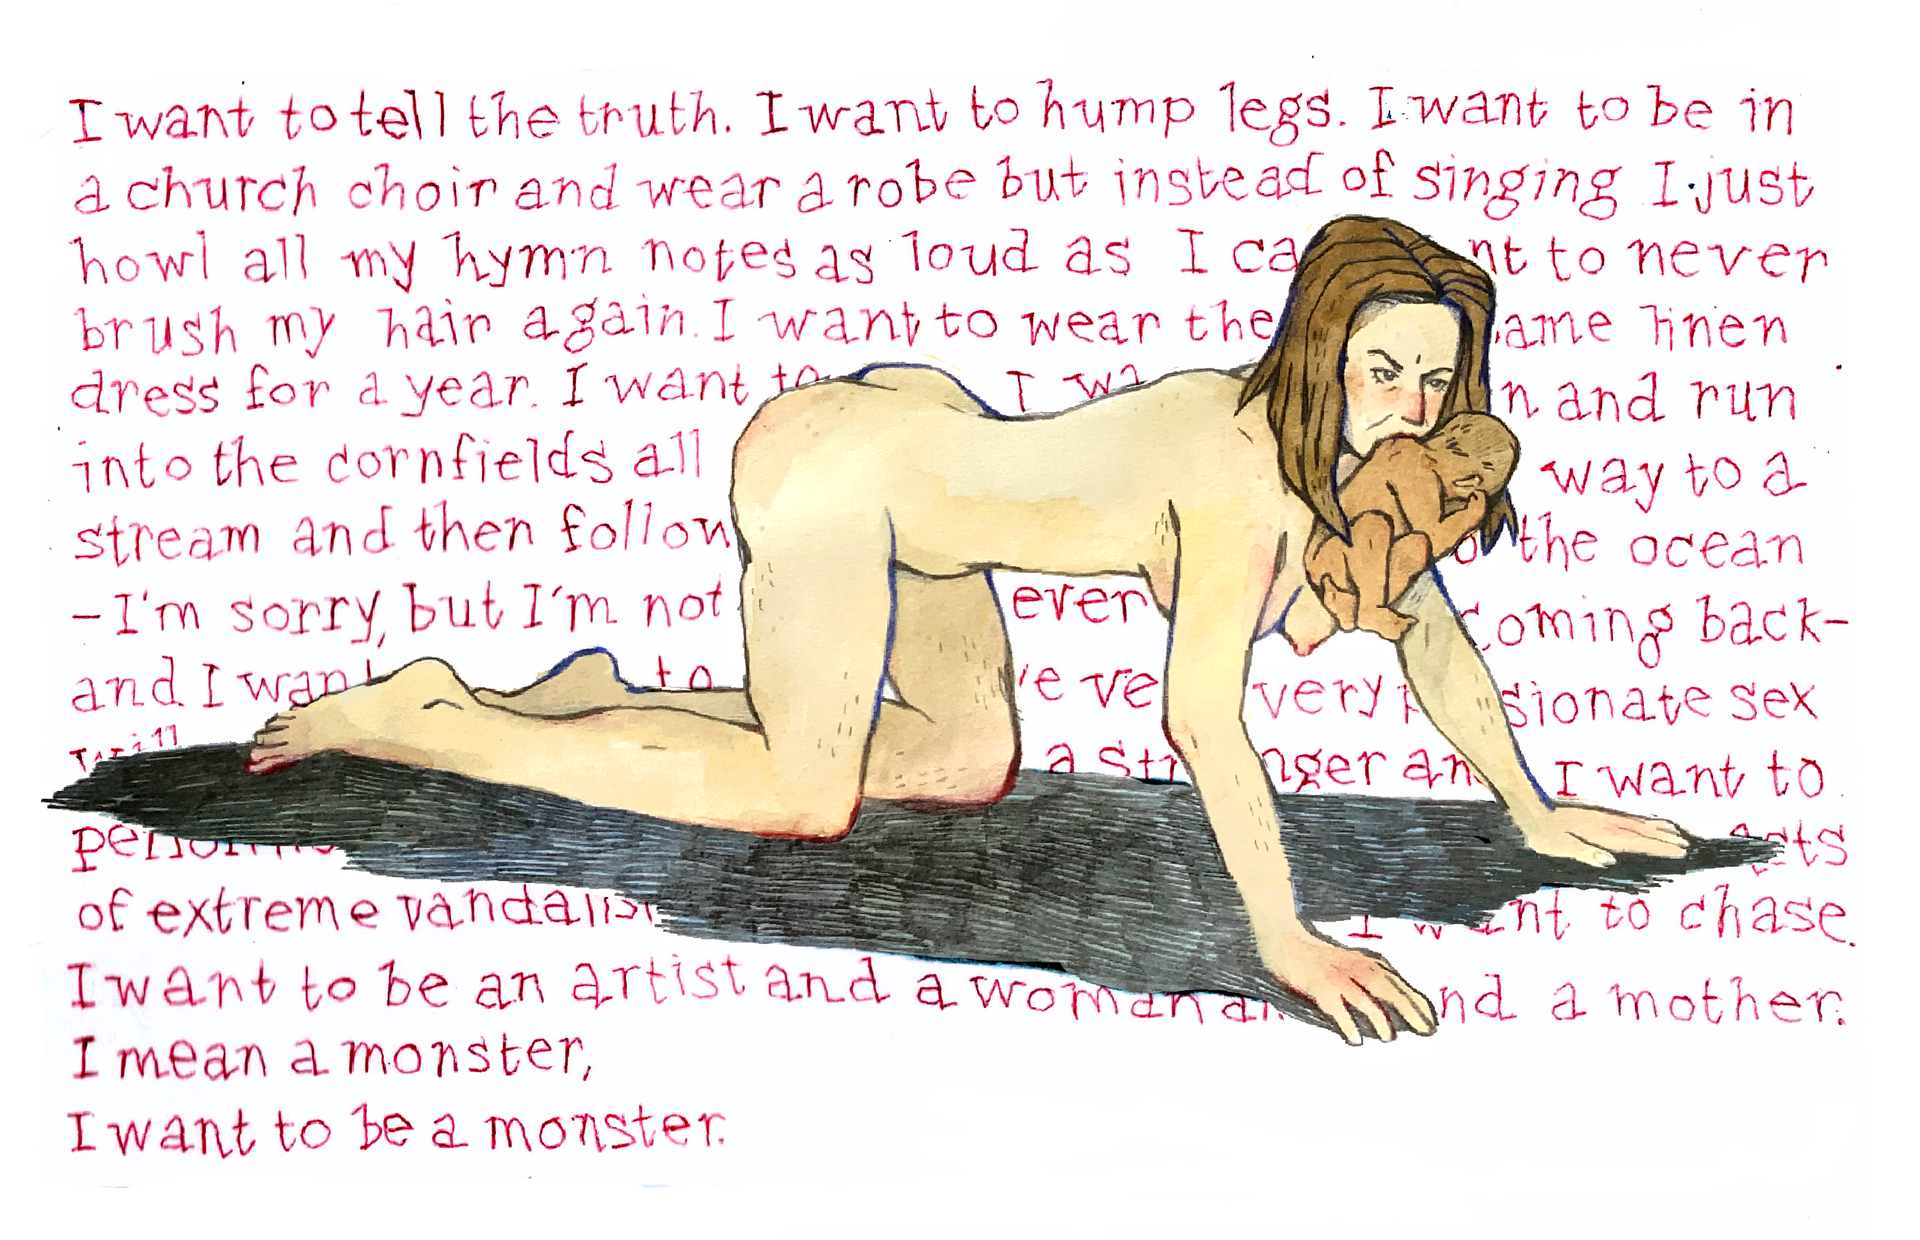 I want to tell the truth. I want to hump legs. I want to be in
a church choir and wear a robe but instead of singing I just
howl all my hymn notes as loud as I to never
brush my hair again. I want to wear the linen
dress for a year. I want to I and run
into the cornfields all way to a
stream and then follow the ocean
-I'm sorry, but I'm not ever coming back-
and I want to very sex
a and I want to
of extreme I want to chase.
I want to be an artist and a woman and a mother.
I mean a monster,
I want to be a monster.